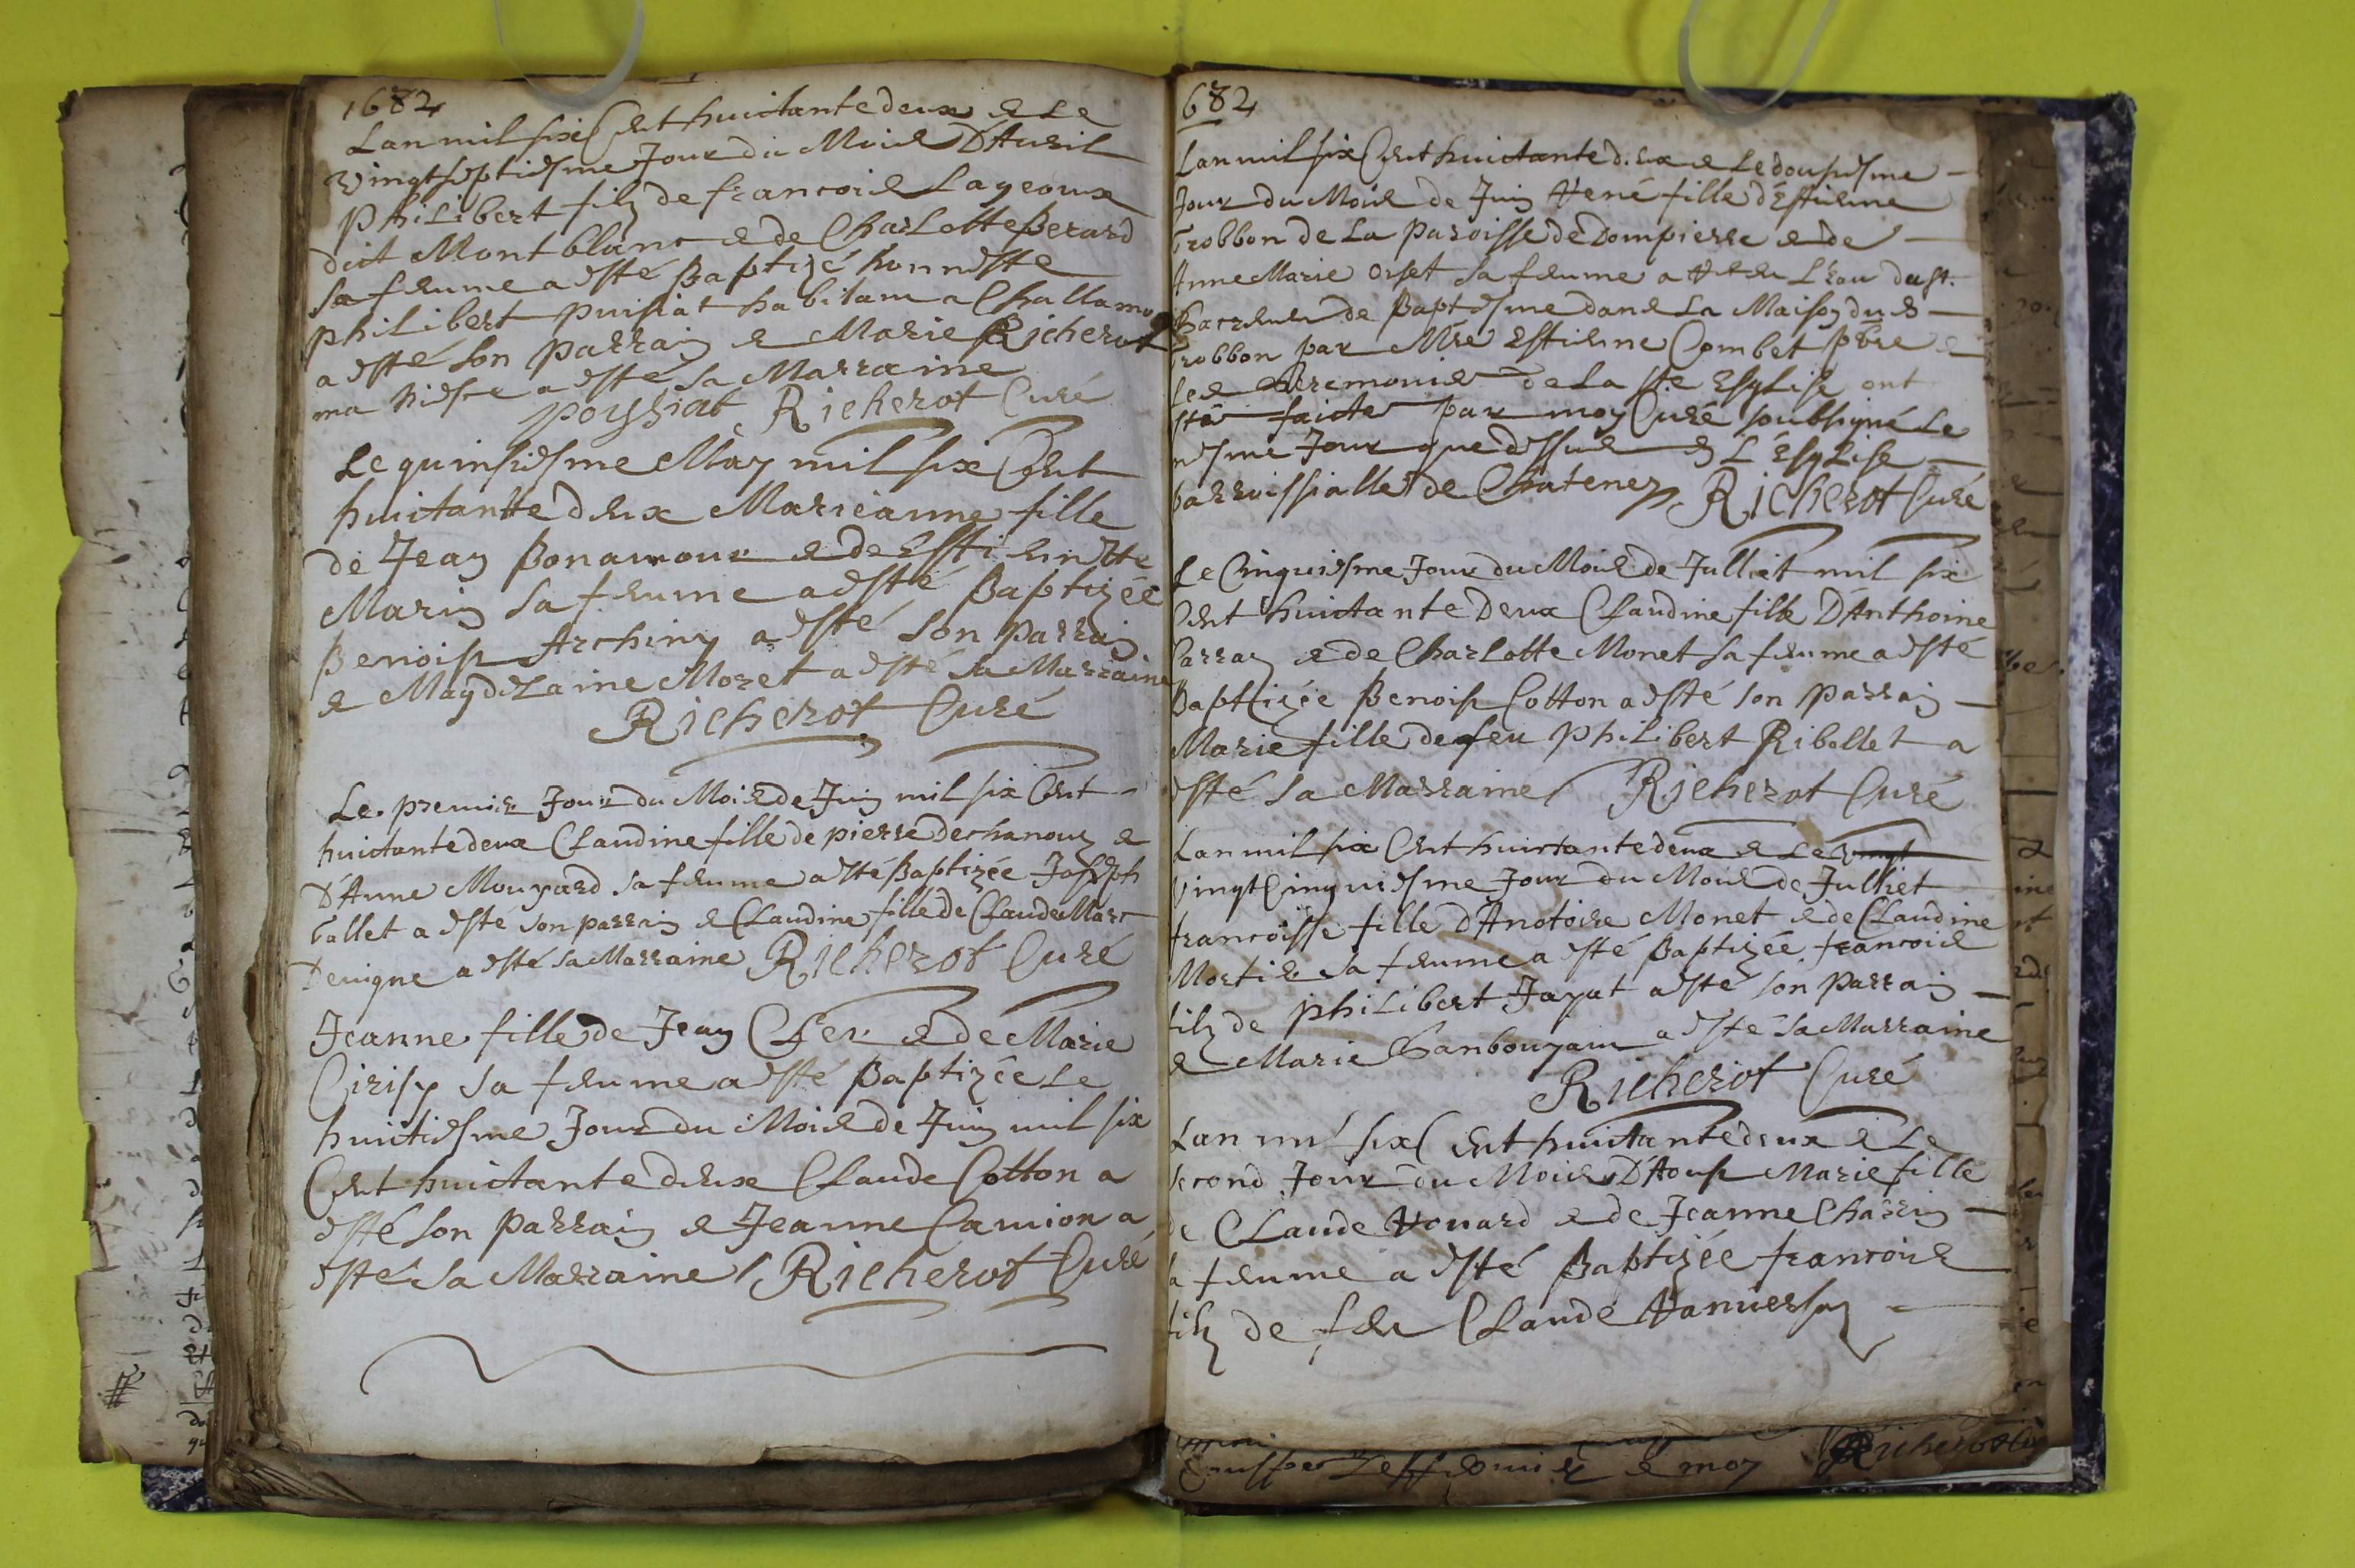 1682
Lan mil six Cent huictante deux & Le
vingt septiesme Jour du Mois D'Auril
Philibert filz de francois Layeoux
dict Montblanc & de Charlotte Berard
sa femme a esté Baptizé honneste
philibert puisiat habitant a Challamo
a esté son parrain & Marie Richerot
ma niesce a esté sa Marraine
poyssiat Richerot Curé
Le quinsiesme May mil six Cent
huictante deux Marieanne fille
de Jean Bonamour & de Estiennette
Marin sa femme a esté Baptizée
Benoist Archiny a esté son parrain
& Magdelaine Moret a esté sa Marraine
Richerot Curé
Le premier Jour du Mois de Juin mil six Cent
huictante deux Claudine fille de pierre Dechanouz &
D'Anne Mouyard sa femme a esté Baptizée Joseph
ballet a esté son parrain & Claudine fille de Claude Marc
Deuigne a esté sa Marraine Richerot Curé
Jeanne fille de Jean Cler & de Marie
Cirisy sa femme a esté Baptizée Le
huictiesme Jour du Mois de Juin mil six
Cent huictante deux Claude Cotton a
esté son parrain & Jeanne Camion a
esté sa Marraine Richerot Curé
682
Lan mil six Cent huictante deux & Le dousiesme
Jour du Mois de Juin René fille d'Estienne
Trobbon de La paroisse de Dompierre & de
Anne Marie orset sa femme a L'eau du st.
Sacrement de Baptesme dans La Maison du d
Trobbon par Mre Estienne Combet pbre
Les Ceremonies de La ste Esglise ont
sté faicte par moy Curé soubsigné Le
mesme Jour que dessus L'Esglise
parroissialle de Chatenay Richerot Curé
Le Cinquiesme Jour du Mois de Julliet mil six
Cent huictante Deux Claudine fille D'Anthoine
Carray & de Charlotte Monet sa femme a esté
Baptizée Benoist Cotton a esté son parrain
Marie fille de feu philibert Ribollet a
esté sa Marraine Richerot Curé
Lan mil six Cent huictante deux & Le vingt
vingt Cinquiesme Jour du Mois de Julliet
francoisse fille d'Anotoire Monet & de Claudine
Mortier sa femme a esté Baptizée francois
filz de philibert Jayat a esté son parrain
& Marie a esté sa Marraine
Richerot Curé
Lan mil six Cent huictante deux & Le
second Jour du Mois D'Aoust Marie fille
de Claude Vouard & de Jeanne Charrin
sa femme a esté Baptizée francois
filz de feu Claude Vanuersay
& moy Richerot